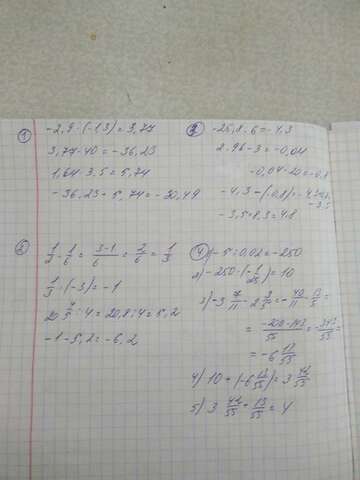 ①
-2,9 · (-1,3) = 3,77
3,77 - 40 = -36,23
1,64 · 3,5 = 5,74
-36,23 + 5,74 = -30,49
②
-25,8 : 6 = -4,3
2,96 - 3 = -0,04
-0,04 · 20 = -0,8
-4,3 - (-0,8) =
-3,5
-3,5 + 8,3 = 4,8
③
1/2 - 1/6 = (3-1)/6 = 2/6 = 1/3
1/3 · (-3) = -1
20 4/5 : 4 = 20,8 : 4 = 5,2
-1 - 5,2 = -6,2
④
1) -5 : 0,02 = -250
2) -250 · (-1/25) = 10
3) -3 7/11 - 2 3/5 = -40/11 - 13/5 =
= (-200-143)/55 = -343/55 =
= -6 13/55
4) 10 + (-6 13/55) = 3 42/55
5) 3 42/55 + 13/55 = 4